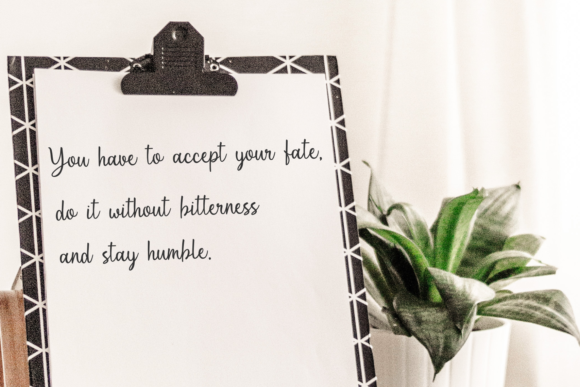 You have to accept your fate,
do it without bitterness
and stay humble.